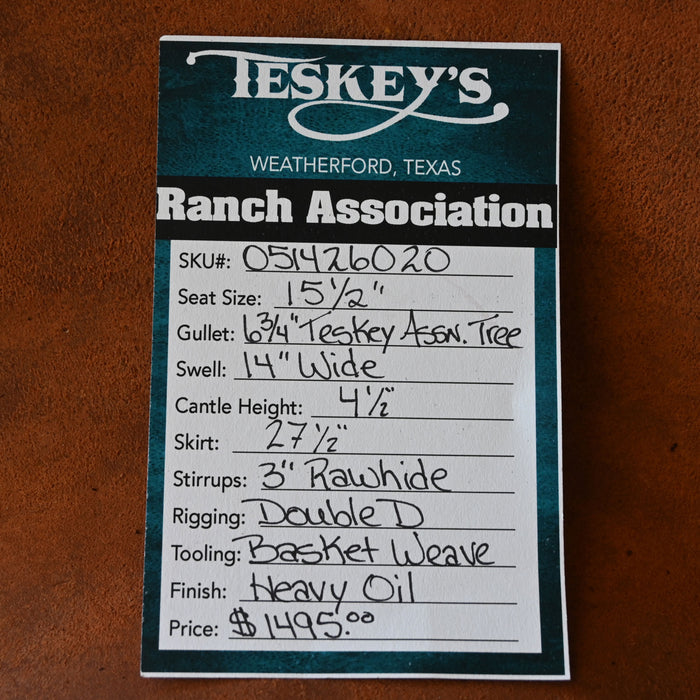 TESKEY'S
WEATHERFORD, TEXAS
Ranch Association
SKU#: 051426020
Seat Size: 15 1/2"
Gullet: 6 3/4" Teskey Assn. Tree
Swell: 14" Wide
Cantle Height: 4 1/2"
Skirt: 27 1/2"
Stirrups: 3" Rawhide
Rigging: Double D
Tooling: Basket Weave
Finish: Heavy Oil
Price: $1495.00